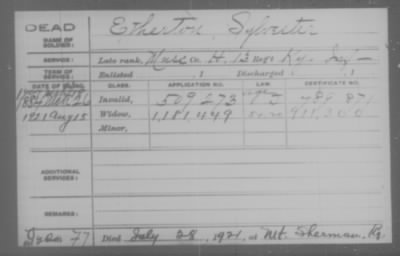 DEAD
NAME OF SOLDIER: Etherton, Sylvester
SERVICE: Late rank, Musc Co. H, 13 Reg't Ky. Inf
TERM OF SERVICE: Enlisted 1 Discharged 1
DATE OF FILING. CLASS. APPLICATION NO. LAW. CERTIFICATE NO.
Invalid, 509,273
1921 Aug 15 Widow, 1,181,449
Minor,
ADDITIONAL SERVICES:
REMARKS:
77 Died July 28, 1921, at Mt. Sherman, Ky.